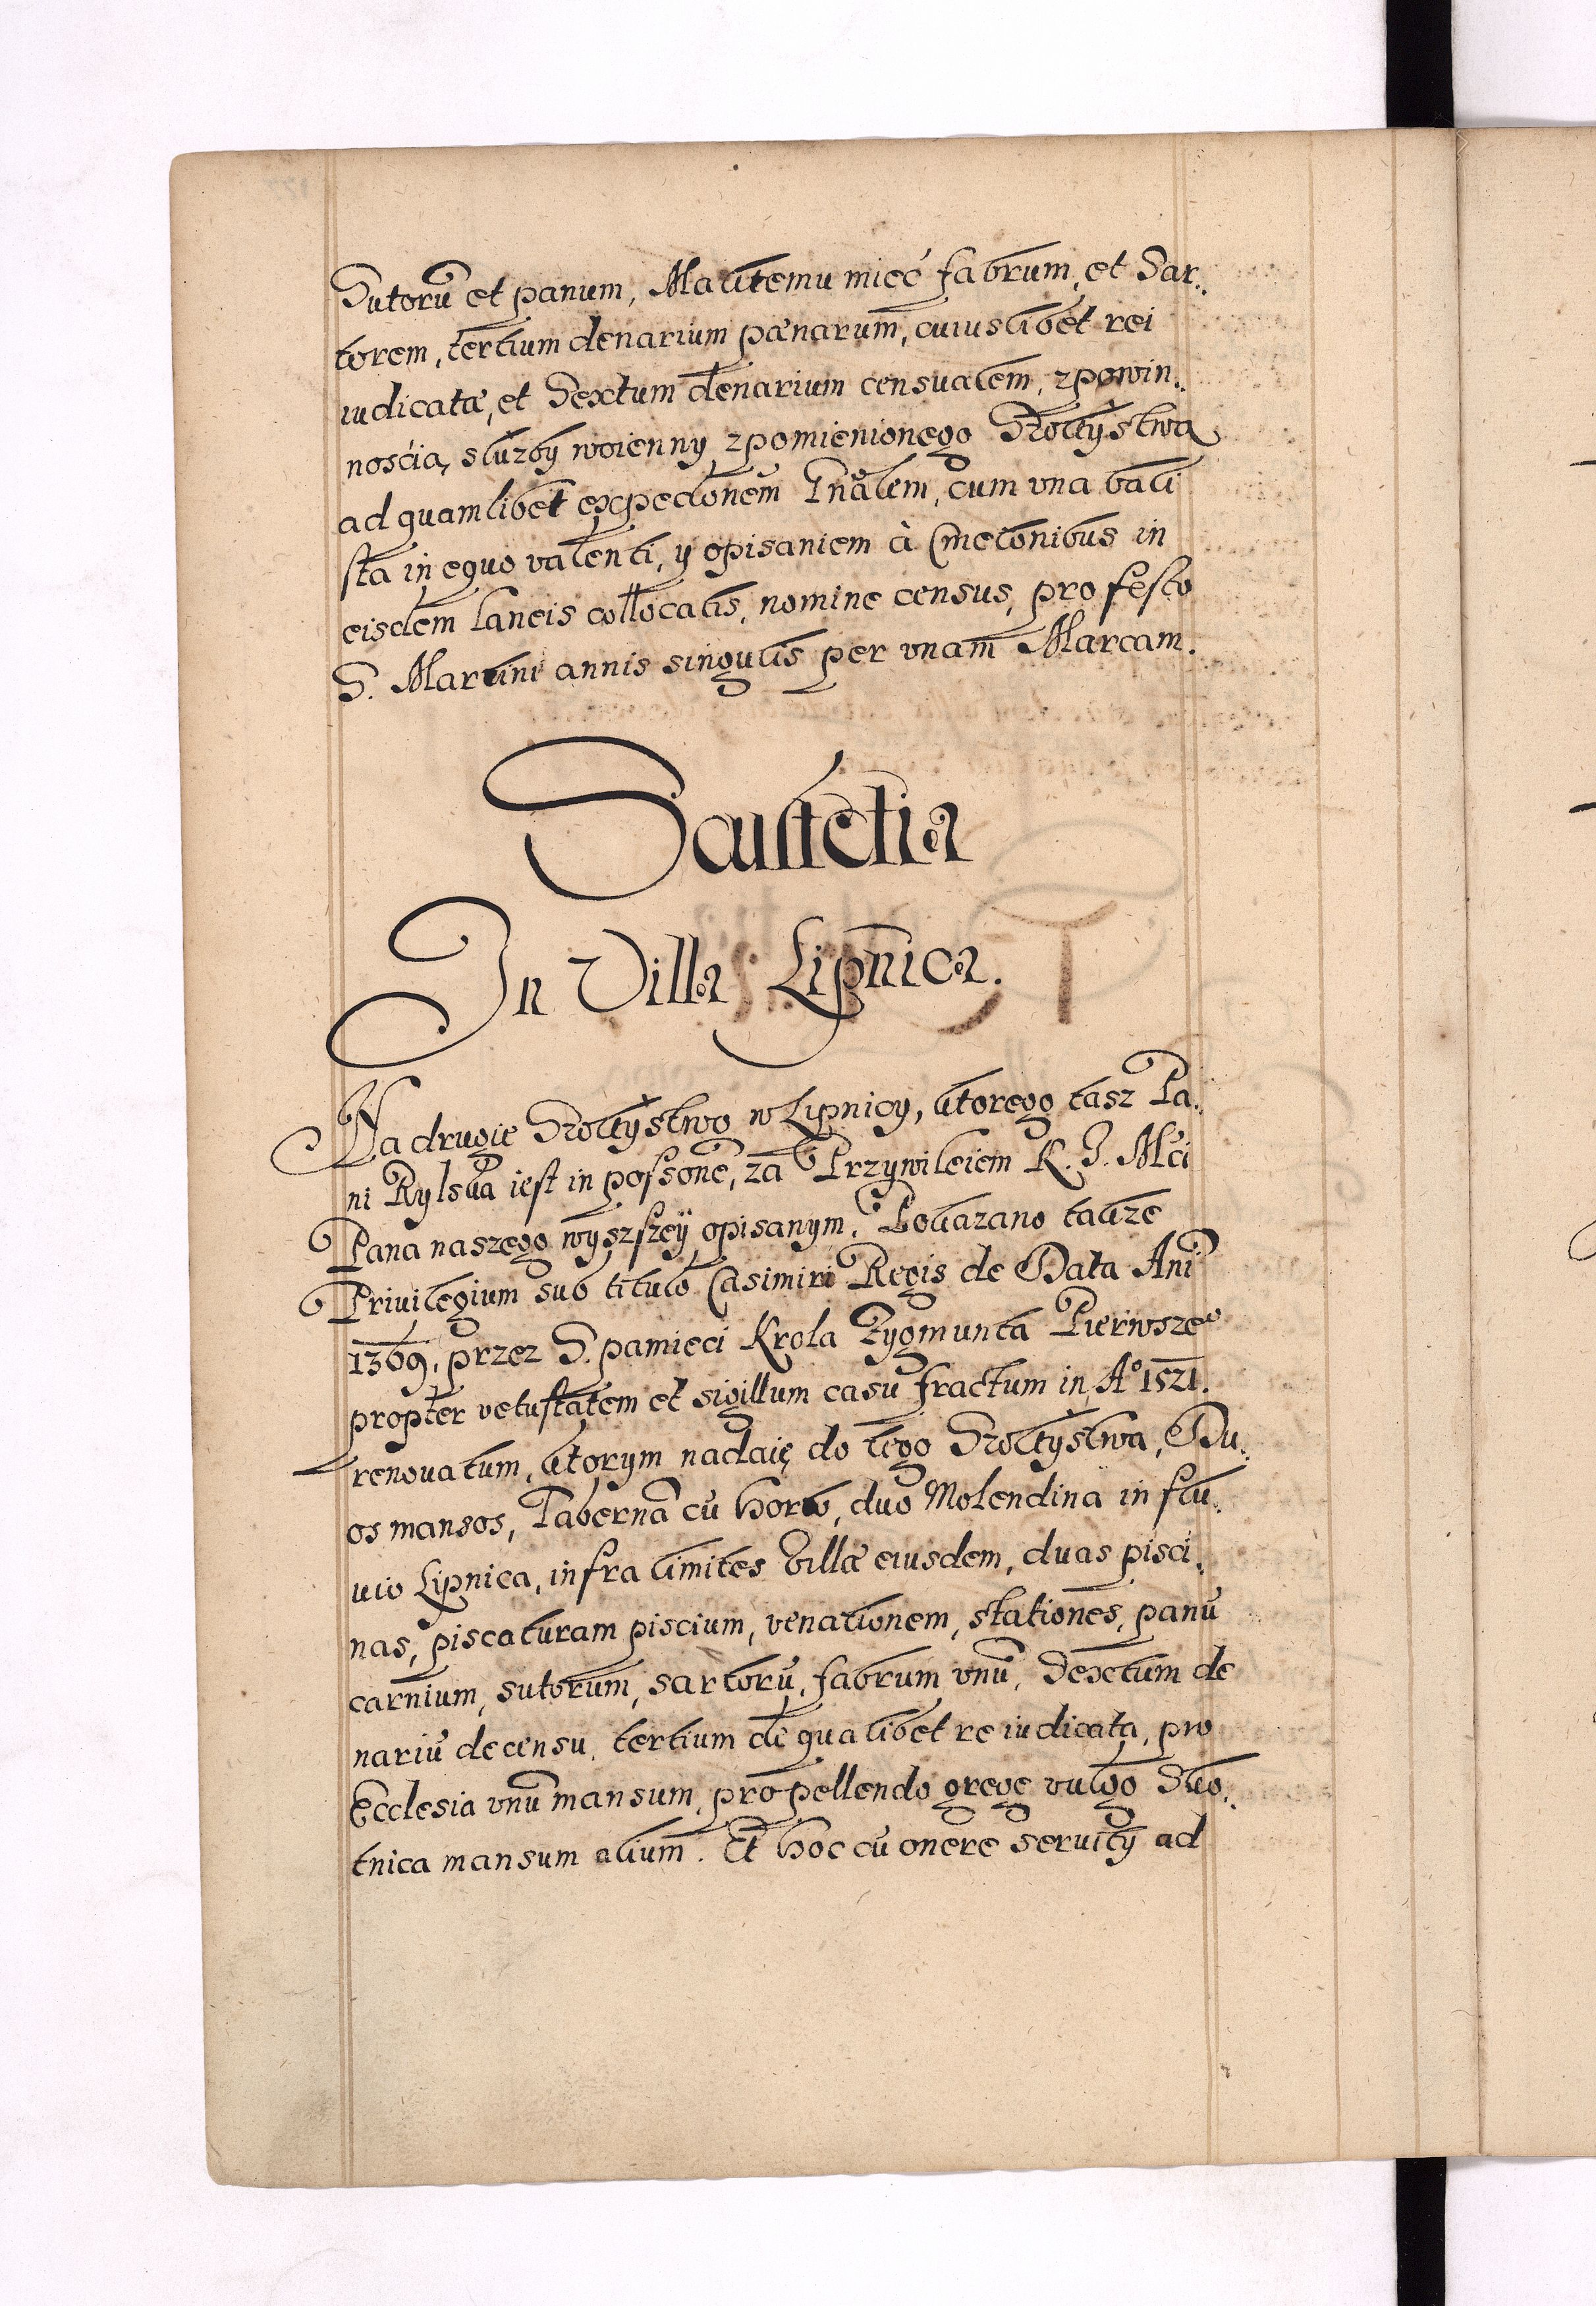 Sutorũ et panum, Ma ktemu mieć fabrum, et Sar:
torem, tertium denarium pænarum, cuiuslibet rei
iudicatæ, et Sextum denarium censualem, zpowin:
nościa, służby woienny zpomienionego Szołtystwa
ad quamlibet expedõnem Gñalem, cum vna bali
sta in equo valenti, y opisaniem à Cmetonibus in
eisdem laneis collocatis, nomine census, pro festo
S. Martini annis singulis per vnam Marcam.
Scultetia
In Villa Lipnica.
Na drugie Szołtystwo w Lipnicy, ktorego tasz Pa:
ni Rylska iest in possone, za Przywileiem K. J. Mći
Pana naszego wyszszey opisanym. Pokazano takze
Priuilegium sub titulo Casimiri Regis de Data Ani
1369, przez S. pamieci Krola Zygmunta Pierwszeº
propter vetustatem et sigillum casu fractum in Aº 1521.
renouatum, ktorym nadaię do tego Szołtystwa, Du:
os mansos, Tabernã cũ horto, duo Molendina in flu:
uio Lipnica, infra limites Villæ eiusdem, duas pisci:
nas, piscaturam piscium, venationem, stationes, panũ
carnium, sutorum, sartorũ, fabrum vnũ, Sextum de
nariũ de censu, tertium de qualibet re iudicata, pro
Ecclesia vnũ mansum, pro pellendo grege vulgo Sko:
tnica mansum alium. Et hoc cũ onere seruitÿ ad